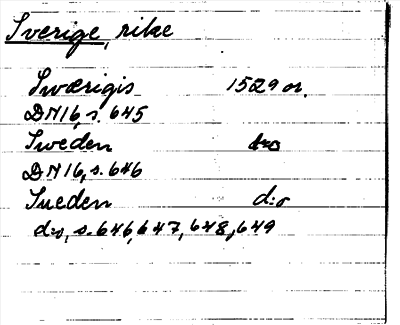 Sverige, rike
Swærigis 1529 or.
DN16, s. 645
Sweden d:o
DN16, s. 646
Sueden d:o
d:o, s. 646, 647, 648, 649